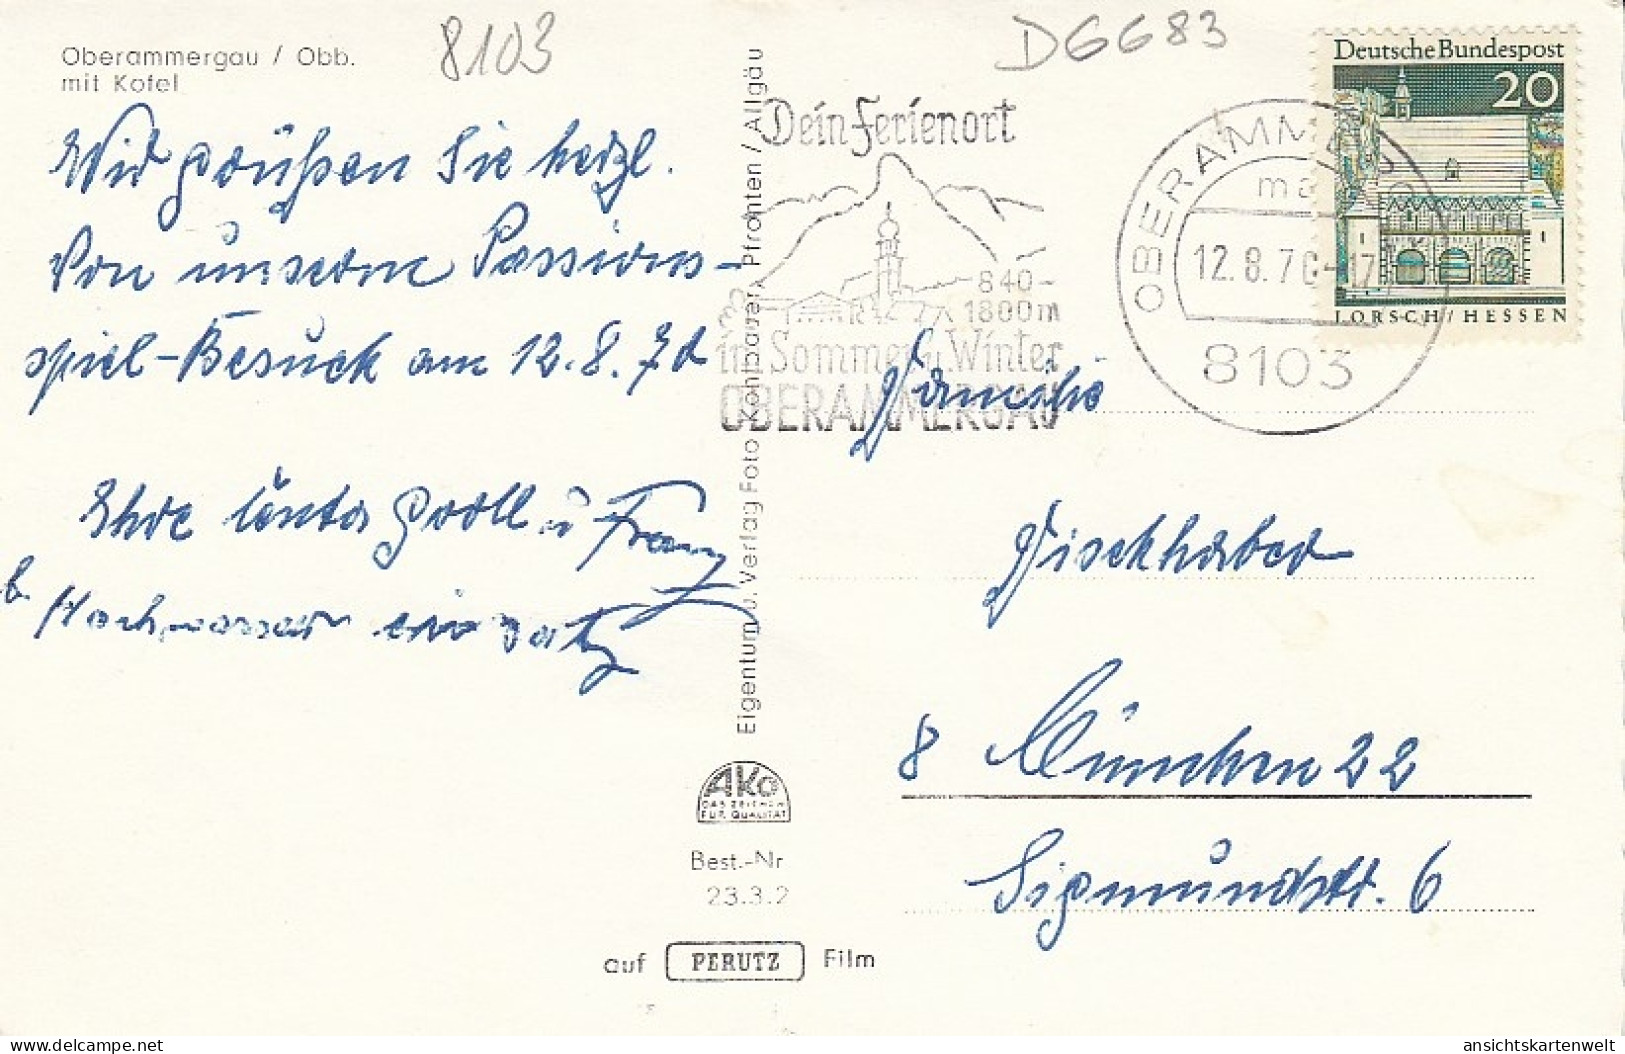 Oberammergau / Obb.
mit Kofel
8103
DG683
Wir grüßen Sie herzl.
Von unserm Passions-
spiel-Besuch am 12.8.70
Ihre u. Franz
b. Hochwasser einsatz
Eigentum u. Verlag Foto Kohlbauer, Pfronten / Allgäu
AKO
DAS ZEICHEN
FÜR QUALITÄT
Best.-Nr
23.3.2
auf PERUTZ Film
Dein Ferienort
840-
1800m
im Sommer u. Winter
OBERAMMERGAU
OBERAMMERGAU
12.8.70-17
8103
Deutsche Bundespost
20
LORSCH/HESSEN
Familie
8 München 22
Sigmundstr. 6
ansichtskartenwelt